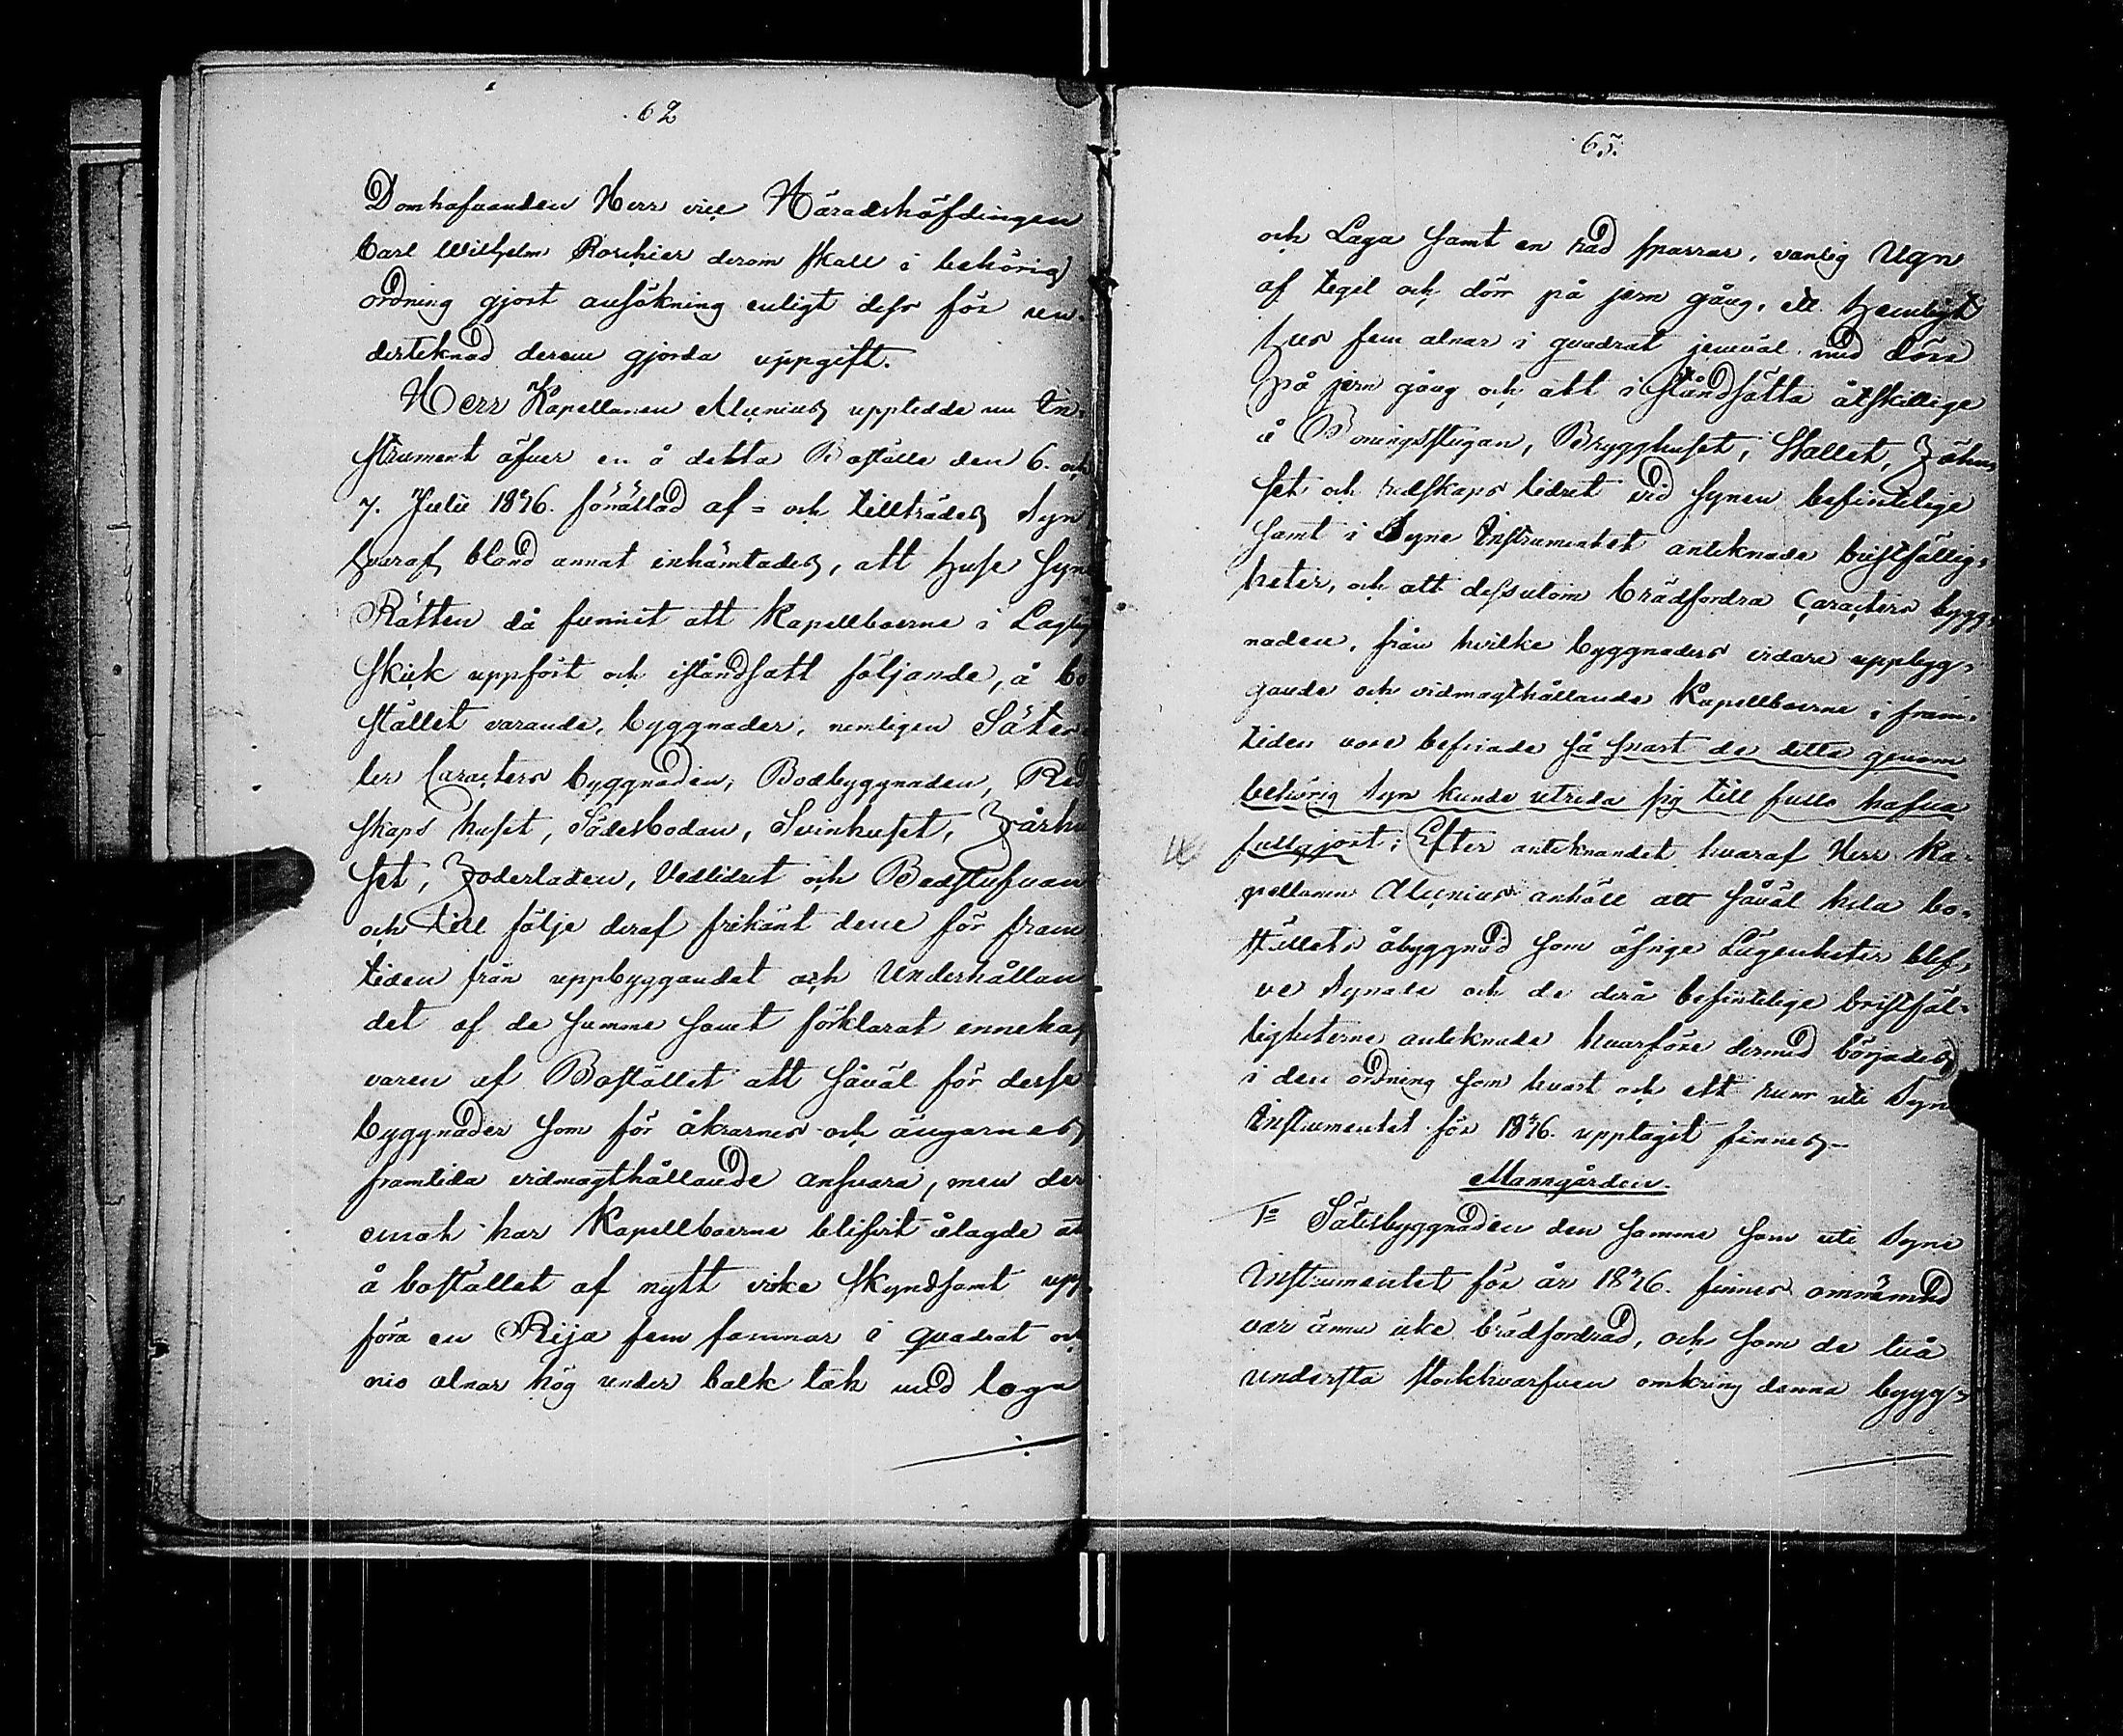 62
Domhafvanden Herr vice Häradshöfdingen
Carl Wilhelm Roschier derom skall i behörig
ordning gjort ansökning enligt dess för un-
dertecknad derom gjorda uppgift.
Herr Kapellanen Alcenius uppledde nu In-
strument öfver en å detta Boställe den 6. och
7. Julii 1846. förrättad af- och tillträdes Syn
hvaraf bland annat inhämtades, att huse Syne
Rätten då funnit att Kapellboerne i Laglig
skick uppfört och iståndsatt följande, å bo
stället varande, byggnader, nemligen Säter
ler Caracters byggnaden, Bodbyggnaden, Red
skaps huset, Sädesbodan, Svinhuset, Fårhu
set, Foderladen, Vedlidret och Badstufvan
och till följe deraf frikänt dem för fram
tiden från uppbyggandet och Underhållan
det af de samme samt förklarat inneha
varen af Bostället att såväl för desse
byggnader som för åkrarnes och ängarnes
framtida vidmagthållande ansvara, men der
emot har Kapellboerne blifvit ålagde att
å bostället af nytt virke skyndsamt upp
föra en Rija fem famnar i quadrat och
nio alnar hög under balk tak med loga
65.
och Laga samt en rad sparrar, vanlig Ugn
af tegel och dörr på jern gång, ett hemligt
hus fem alnar i quadrat jemväl med dörr
på jern gång och att i ståndsätta åtskillige
å Boningsstugan, Brygghuset, Stallet, Fähu-
set och redskaps lidret vid synen befintelige
samt i Syne Instrumentet antecknade bristfällig-
heter, och att dessutom brädfordra Caracters bygg-
naden, från hvilke byggnaders vidare uppbyg-
gande och vidmagthållande Kapellboerne i fram-
tiden vore befriade så snart de detta genom
behörig Syn kunde utreda sig till fullo hafva
fullgjort; Efter antecknandet hvaraf Herr Ka-
pellanen Alcenius anhöll att såväl hela bo-
ställets åbyggnad som öfrige Lägenheter blef-
ve Synade och de derå befintelige bristfäl-
ligheterne antecknade hvarföre dermed börjades
i den ordning som hvart och ett rum uti Syne
Instrumentet för 1846. upptagit finnes.
Manngården.
1o Sätesbyggnaden den samme som uti Syne
Instrumentet för år 1846. finnes omnämnd
var ännu icke brädfordrad, och som de två
understa stockhvarfven omkring denna bygg-